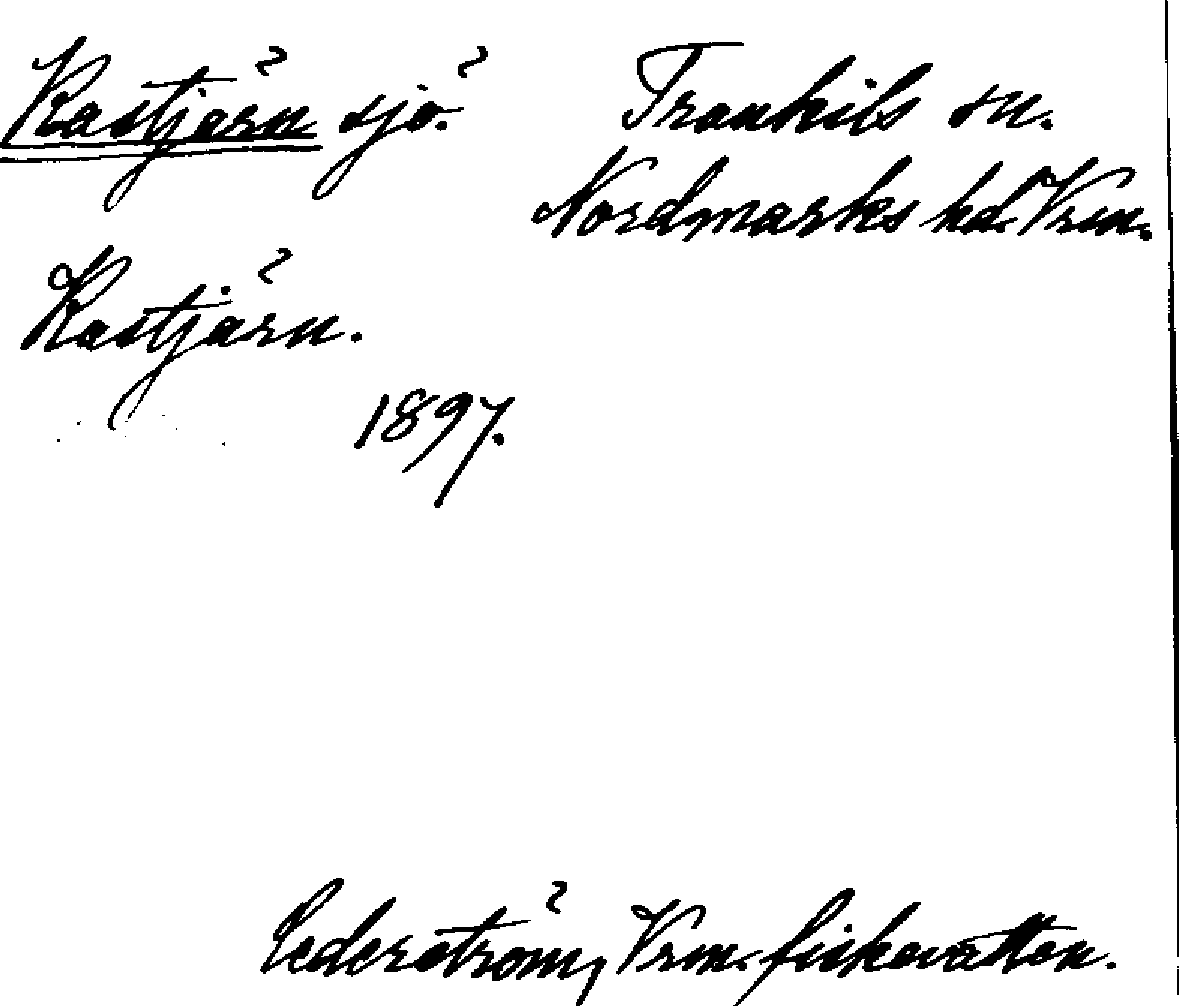 Kastjärn sjö. Trankils sn.
Nordmarks hd. Vrm.
Kastjärn.
1897.
Cederström, Vrm. fiskevatten.